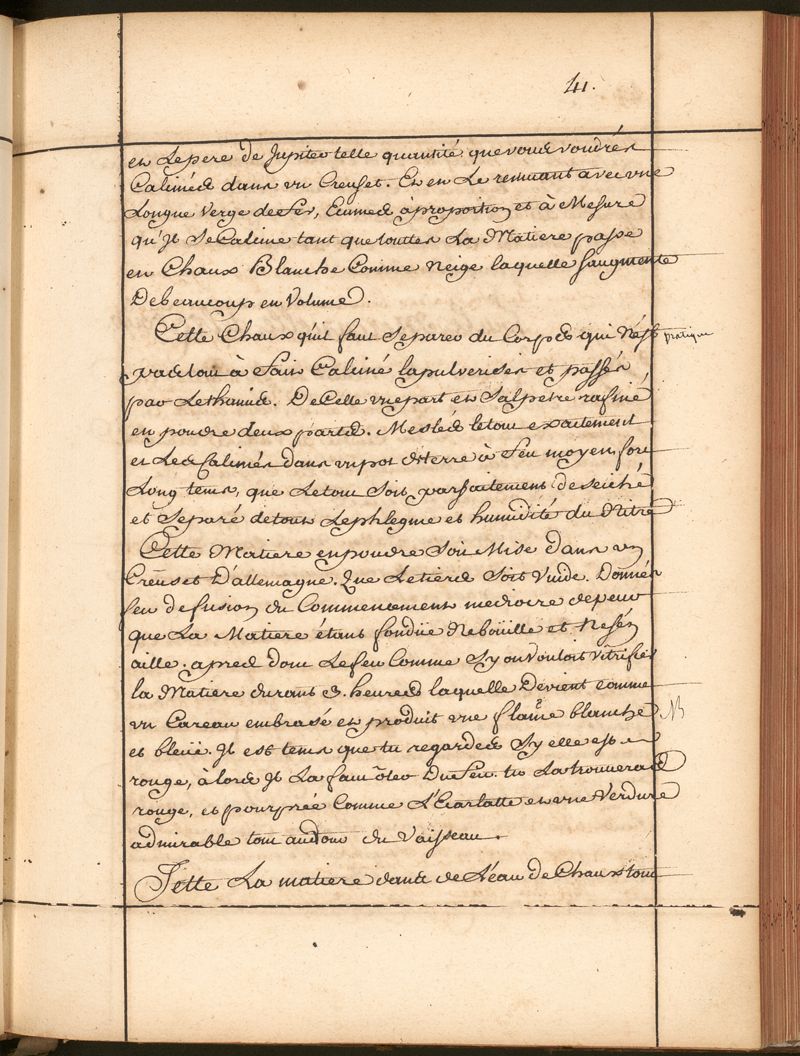 41.
en Le pere de Jupiter telle quantité que vous voudrés
Calinés dans un Creuset. Et en Le remuant avec une
Longue Verge de Fer, Ecumes à proportion et à Mesure
qu'Jl se Caline tant que touttes La Matiere passe
en Chaux Blanche Comme Neige laquelle saugmente
De beaucoup en Volume.
Cette Chaux qu'il faut separer du Corps qui N'ést
pratique
pas tout à Fair Caliné la pulverisér et passér
par Le thamis. De Cette une part en Salpetre rafiné
en poudre deux parts. Meslés le tout exactement
et Les Calinés dans un pot de terre à Feu moyen, fort
Long tems, que Le tout soit parfaitement deseiché
et separé de tout Le phlegme et humidité du Nitre
Cette Matiere en poudre soit Mise dans un
Creuset D'allemagne. Que Le tiers soit Vuide. Donnés
feu de fusion du Commencement mediocre de peur
que La Matiere étant fondüe Ne boüille et Ne s'én
aille. apres dont Le feu Comme sy on Vouloit Vitrifier
la Matiere durant 3. heures laquelle Devient comme
un Careau embrasé en produit une flame blanche
NB
et bleüe. Jl est tems que tu regardes sy elle est
rouge, à lors Jl La faut ôter Du Feu. tu La trouveras
rouge, et pourprée Comme L'Ecarlatte en une Verdure
admirable tout au tour du Vaisseau.
Jette La matiere dans de L'éau de Chaux tout